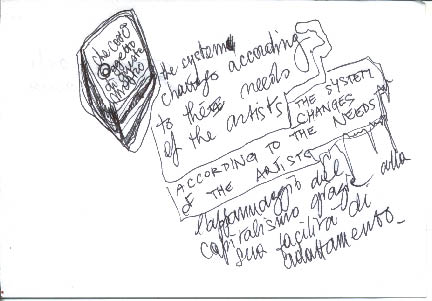 che cos'è
oggetto
di queste
the system
change according
to the needs
of the artists
THE SYSTEM
CHANGES
ACCORDING TO THE NEEDS
OF THE ARISTS
del
capitalismo grazie alla
sua facilità di
adattamento